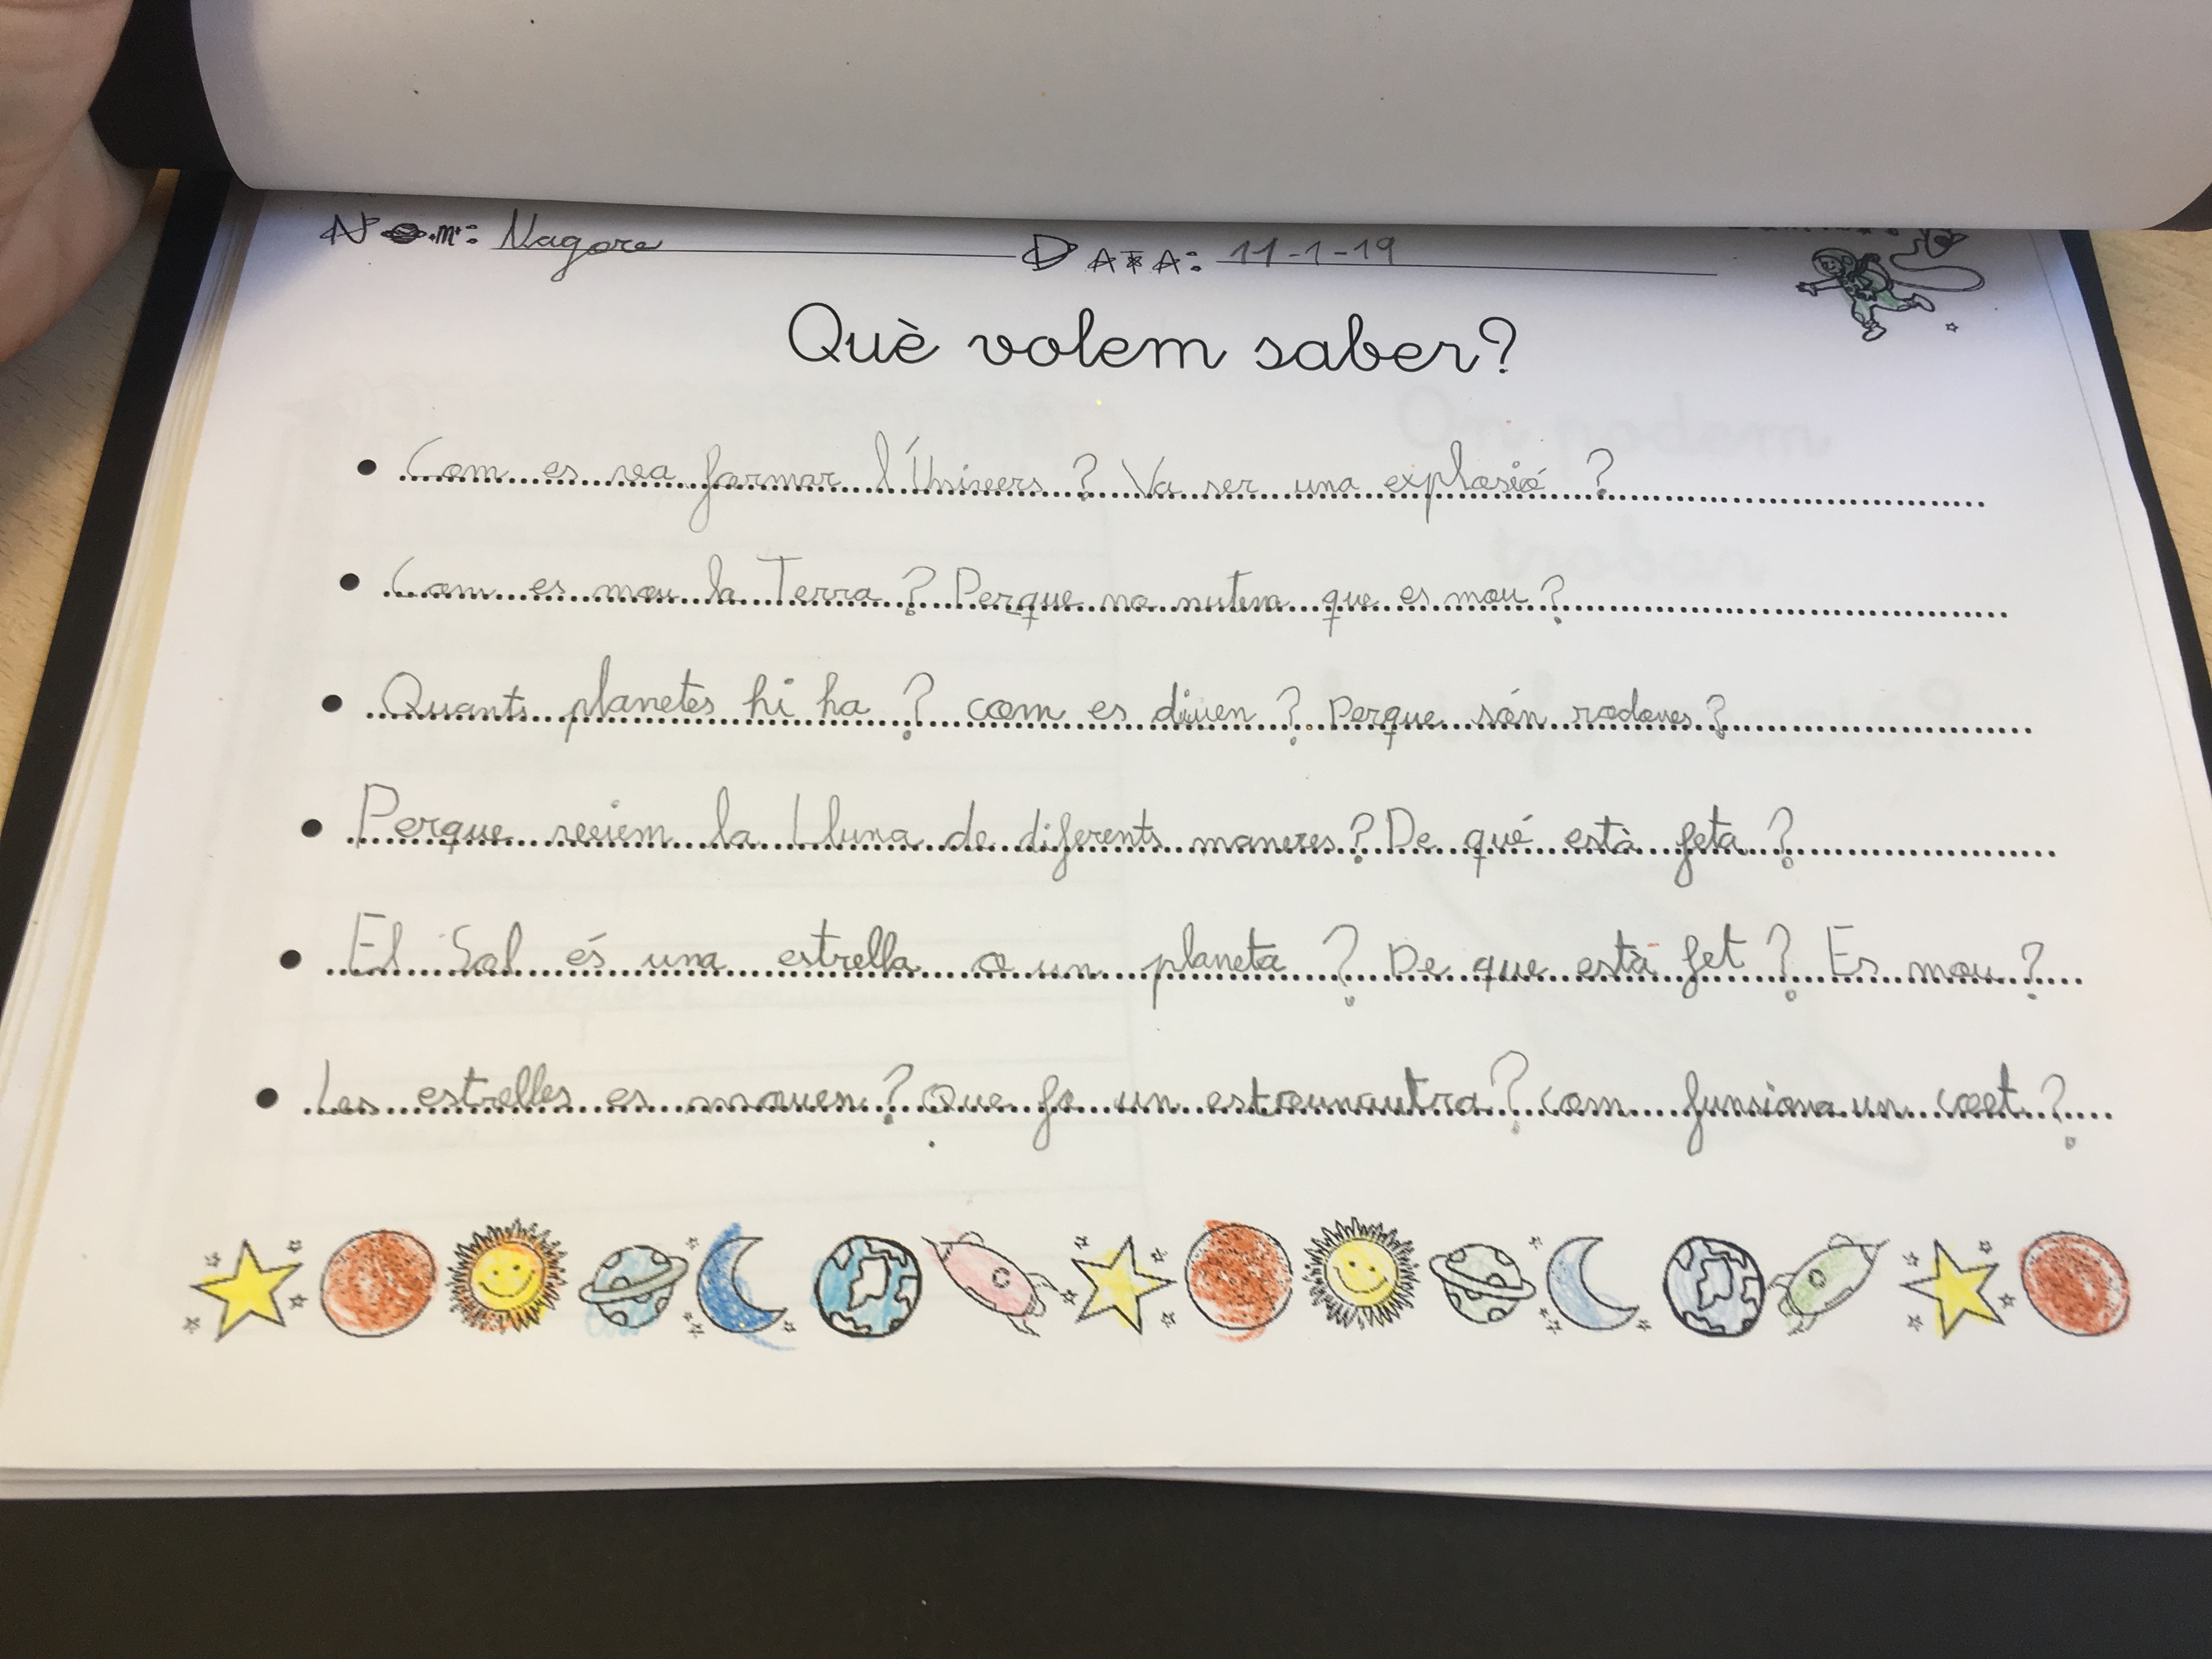 Nom: Nagore Data: 11-1-19
Què volem saber?
• Com es va formar l'Univers? Va ser una explosió?
• Com es mou la Terra? Perque no nutem que es mou?
• Quants planetes hi ha? com es diuen? Perque són rodones?
• Perque veiem la Lluna de diferents maneres? De qué està feta?
• El Sol és una estrella o un planeta? De que està fet? Es mou?
• Les estrelles es mouen? Que fa un estounautra? com funsiona un coet?